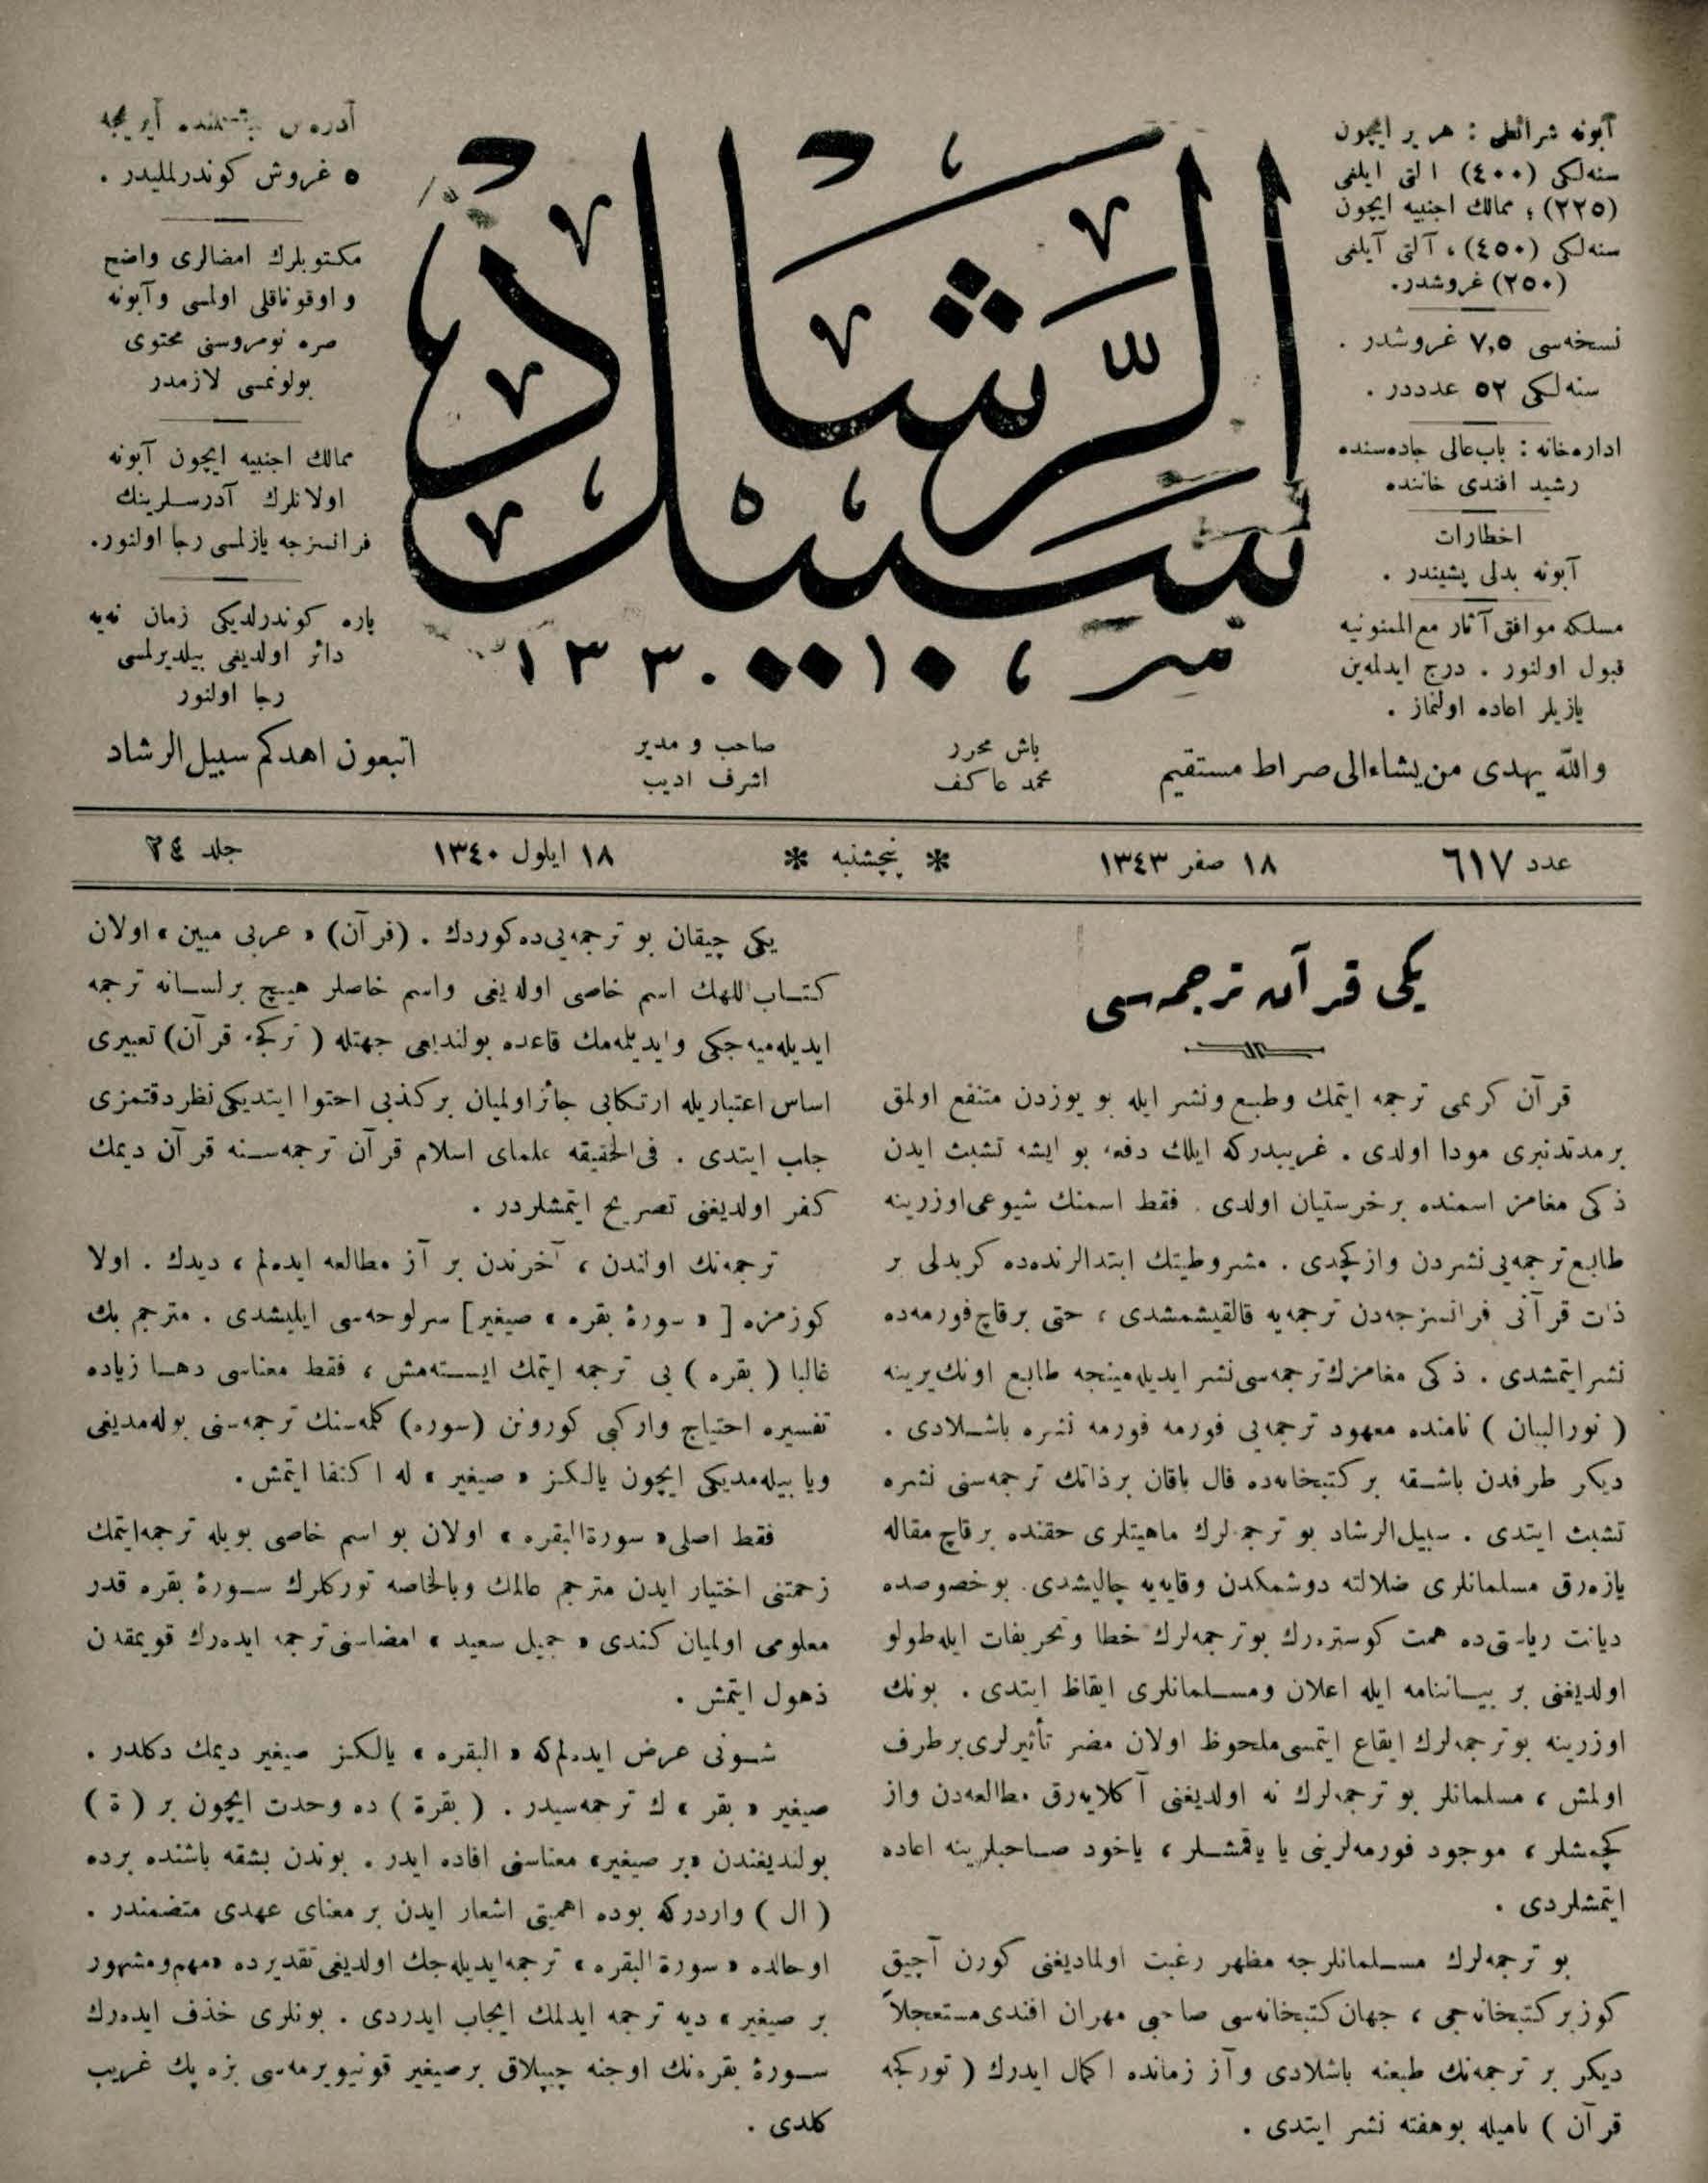 آبونه شرائطی : هر یر ایچون
سنه‌لكی (٤٠٠) التی ایلغی
(٢٢٥) ؛ ممالك اجنبیه ایچون
سنه‌لكی (٤٥٠) ، آلتی آیلغی
(٢٥٠) غروشدر.
نسخه‌سی ٧,٥ غروشدر .
سنه‌لكی ٥٢ عدددر .
اداره‌خانه : باب‌عالی جاده‌سنده
رشید افندی خاننده
اخطارات
آبونه بدلی پشیندر .
مسلكه موافق آثار مع‌الممنونیه
قبول اولنور . درج ایدلمه‌ین
یازیلر اعاده اولنماز .
سبیل الرشاد
١٣٣٠
آدرس
٥ غروش كوندرلملیدر .
مكتوبلرك امضالری واضح
و اوقوناقلی اولمسی و آبونه
صره نومروسنی محتوی
بولونمسی لازمدر
ممالك اجنبیه ایچون آبونه
اولانلرك آدرسلرینك
فرانسزجه یازلمسی رجا اولنور.
پاره كوندرلدیكی زمان نه‌یه
دائر اولدیغی بیلدیرلمسی
رجا اولنور
والله یهدی من یشاء الی صراط مستقیم
باش محرر
محمد عاكف
صاحب و مدیر
اشرف ادیب
اتبعون اهدكم سبیل الرشاد
عدد ٦١٧
١٨ صفر ١٣٤٣
* پنجشنبه *
١٨ ایلول ١٣٤٠
جلد ٢٤
یكی قرآن ترجمه‌سی
قرآن كریمی ترجمه ایتمك وطبع ونشر ایله بو یوزدن متنفع اولمق
بر مدتدنبری مودا اولدی . غریبدركه ایلك دفعه بو ایشه تشبث ایدن
ذكی مغامز اسمنده بر خرستیان اولدی . فقط اسمنك شیوعی اوزرینه
طابع ترجمه‌یی نشردن وازكچدی . مشروطیتك ابتدالرنده‌ده كریدلی بر
ذات قرآنی فرانسزجه‌دن ترجمه‌یه قالقیشمشدی ، حتی بر قاچ فورمه‌ده
نشر ایتمشدی . ذكی مغامزك ترجمه‌سی نشر ایدیله‌مینجه طابع اونك یرینه
( نورالبیان ) نامنده معهود ترجمه‌یی فورمه فورمه نشره باشلادی .
دیكر طرفدن باشقه بر كتبخانه‌ده فال باقان بر ذاتك ترجمه‌سنی نشره
تشبث ایتدی . سبیل‌الرشاد بو ترجمه‌لرك ماهیتلری حقنده بر قاچ مقاله
یازه‌رق مسلمانلری ضلالته دوشمكدن وقایه‌یه چالیشدی . بو خصوصده
دیانت ریاستی‌ده همت كوستره‌رك بو ترجمه‌لرك خطا و تحریفات ایله طولو
اولدیغنی بر بیاننامه ایله اعلان ومسلمانلری ایقاظ ایتدی . بونك
اوزرینه بو ترجمه‌لرك ایقاع ایتمسی ملحوظ اولان مضر تأثیرلری بر طرف
اولمش ، مسلمانلر بو ترجمه‌لرك نه اولدیغنی آكلایه‌رق مطالعه‌دن واز
كچمشلر ، موجود فورمه‌لرینی یا یاقمشلر ، یاخود صاحبلرینه اعاده
ایتمشلردی .
بو ترجمه‌لرك مسلمانلرجه مظهر رغبت اولمادیغنی كورن آچیق
كوز بر كتبخانه‌جی ، جهان كتبخانه‌سی صاحبی مهران افندی مستعجلاً
دیكر بر ترجمه‌نك طبعنه باشلادی و آز زمانده اكمال ایدرك ( توركجه
قرآن ) نامیله بو هفته نشر ایتدی .
یكی چیقان بو ترجمه‌یی‌ده كوردك . (قرآن) « عربی مبین » اولان
كتاب‌اللهك اسم خاصی اولدیغی واسم خاصلر هیچ بر لسانه ترجمه
ایدیله‌میه‌جكی وایدیلمه‌مك قاعده بولندیغی جهتله ( تركجه قرآن) تعبیری
اساس اعتباریله ارتكابی جائز اولمیان بر كذبی احتوا ایتدیكی نظر دقتمزی
جلب ایتدی . فی‌الحقیقه علمای اسلام قرآن ترجمه‌سنه قرآن دیمك
كفر اولدیغنی تصریح ایتمشلردر .
ترجمه‌نك اولندن ، آخرندن بر آز مطالعه ایده‌لم ، دیدك . اولا
كوزمزه [ « سورهٔ بقره » صیغیر] سرلوحه‌سی ایلیشدی . مترجم بك
غالبا ( بقره ) یی ترجمه ایتمك ایسته‌مش ، فقط معناسی دها زیاده
تفسیره احتیاج وار كبی كورونن (سوره) كلمه‌سنك ترجمه‌سنی بوله‌مدیغی
ویا بیله‌مدیكی ایچون یالكز « صیغیر » له اكتفا ایتمش.
فقط اصلی « سورة‌البقره » اولان بو اسم خاصی بویله ترجمه ایتمك
زحمتنی اختیار ایدن مترجم عالمك وبالخاصه توركلرك سورهٔ بقره قدر
معلومی اولمیان كندی « جمیل سعید » امضاسنی ترجمه ایده‌رك قویمقدن
ذهول ایتمش .
شونی عرض ایده‌لم‌كه « البقره » یالكز صیغیر دیمك دكلدر .
صیغیر « بقر » ك ترجمه‌سیدر . ( بقرة ) ده وحدت ایچون بر ( ة )
بولندیغندن «بر صیغیر» معناسنی افاده ایدر . بوندن بشقه باشنده برده
( ال ) واردركه بوده اهمیتی اشعار ایدن بر معنای عهدی متضمندر .
اوحالده « سورة البقره » ترجمه ایدیله‌جك اولدیغی تقدیرده «مهم ومشهور
بر صیغیر» دیه ترجمه ایدلمك ایجاب ایدردی . بونلری حذف ایده‌رك
سورهٔ بقره‌نك اوجنه چیپلاق بر صیغیر قونیویرمه‌سی بزه پك غریب
كلدی .